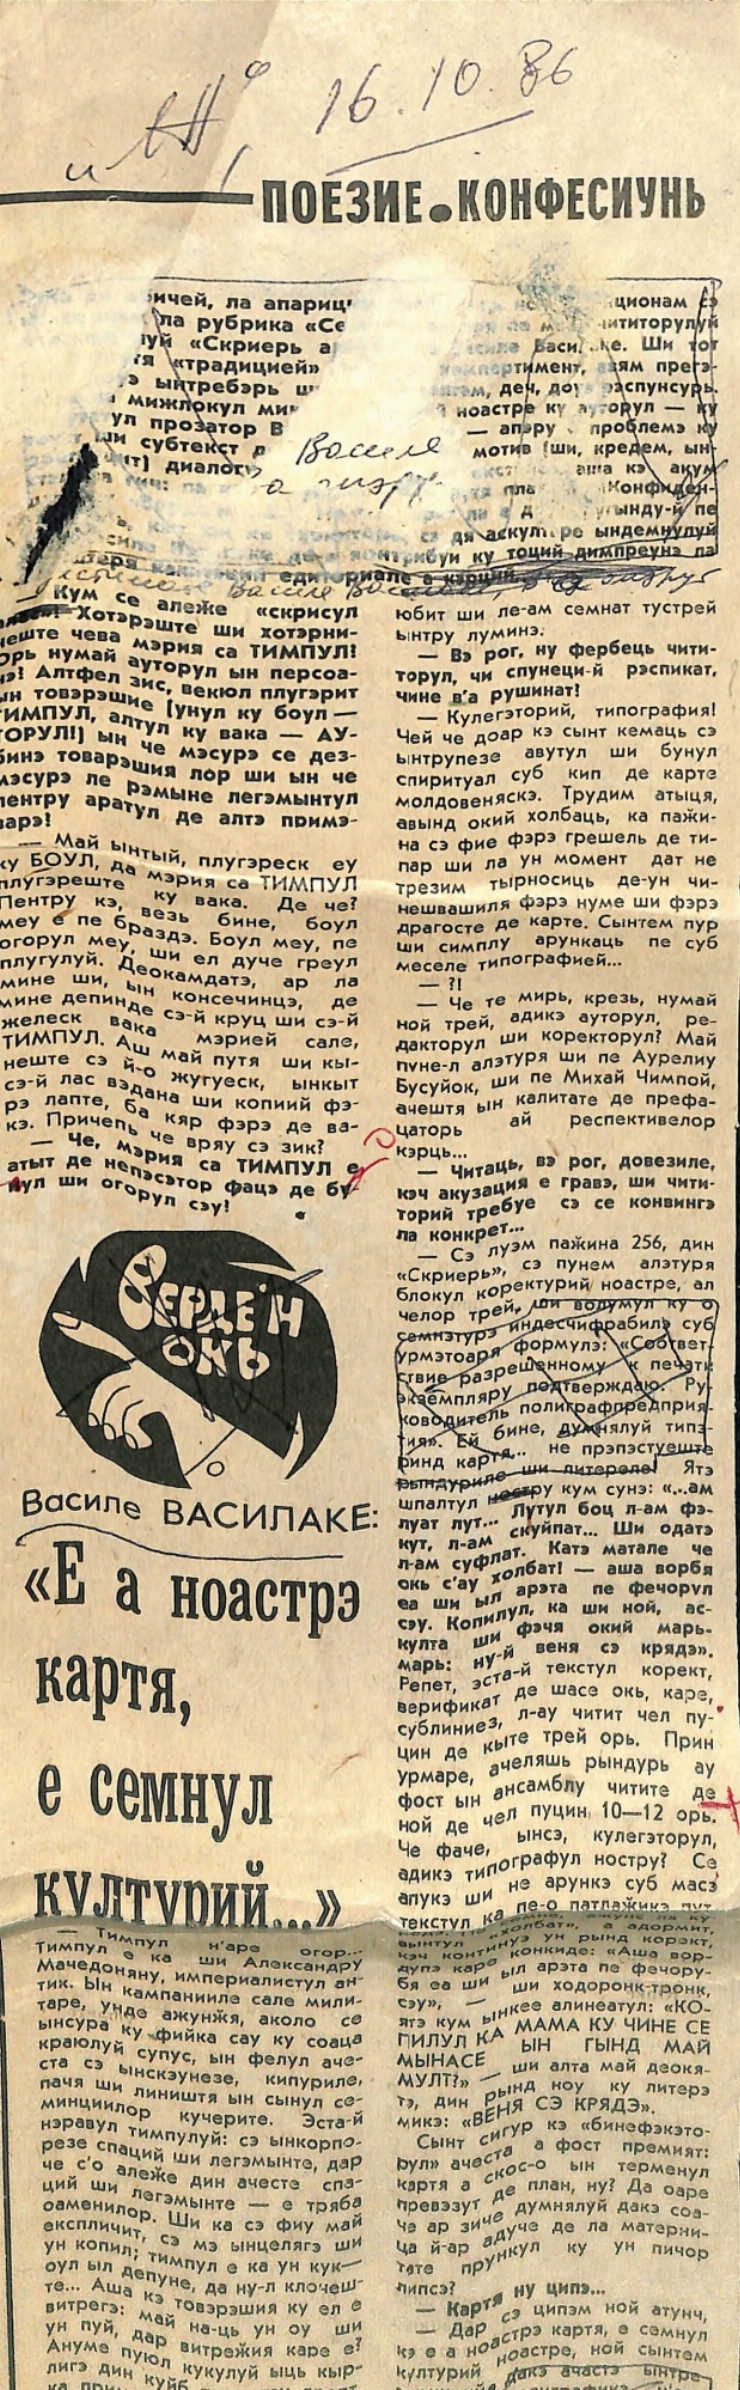 16.10.86
ПОЕЗИЕ.КОНФЕСИУНЬ
ла рубрика «Се
«Скриерь
«традицией»
ынтребэрь
мижлокул
прозатор В
ши субтекст
Василе
ционам сэ
чититорулуй
Ши тот
респунсурь.
ноастре ку ауторул — ку
проблемэ ку
мотив (ши, кредем, ын-
аша кэ акум
Конфиден-
ындемнулуй
контрибуи ку тоций димпреунэ ла
едиториале а кэрций.
Кум се алеже «скрисул
Хотэрэште ши хотэрни-
чева мэрия са ТИМПУЛ!
нумай ауторул ын персоа-
Алтфел зис, векюл плугэрит
ын товэрэшие (унул ку боул —
ТИМПУЛ, алтул ку вака — АУ-
ТОРУЛ!) ын че мэсурэ се дез-
бинэ товарэшия лор ши ын че
мэсурэ ле рэмыне легэмынтул
пентру аратул де алтэ примэ-
варэ!
— Май ынтый, плугэреск еу
ку БОУЛ, да мэрия са ТИМПУЛ
плугэреште ку вака. Де че?
Пентру кэ, везь бине, боул
меу е пе браздэ. Боул меу, пе
огорул меу, ши ел дуче греул
плугулуй. Деокамдатэ, ар ла
мине ши, ын консечинцэ, де
мине депинде сэ-й круц ши сэ-й
желеск вака мэрией сале,
ТИМПУЛ. Аш май путя ши кы-
неште сэ й-о жугуеск, ынкыт
сэ-й лас вэдана ши копиий фэ-
рэ лапте, ба кяр фэрэ де ва-
кэ. Причепь че вряу сэ зик?
— Че, мэрия са ТИМПУЛ е
атыт де непэсэтор фацэ де бу-
нул ши огорул сэу!
СЕРДЕ'Н
ОКЬ
Василе ВАСИЛАКЕ:
«Е а ноастрэ
картя,
е семнул
културий...»
— Тимпул н'аре огор...
Тимпул е ка ши Александру
Мачедоняну, империалистул ан-
тик. Ын кампанииле сале мили-
таре, унде ажунжя, аколо се
ынсура ку фийка сау ку соаца
краюлуй супус, ын фелул аче-
ста сэ ынскэунезе, кипуриле,
пачя ши лиништя ын сынул се-
минциилор кучерите. Эста-й
нэравул тимпулуй: сэ ынкорпо-
резе спаций ши легэмынте, дар
че с'о алеже дин ачесте спа-
ций ши легэмынте — е тряба
оаменилор. Ши ка сэ фиу май
експличит, сэ мэ ынцелягэ ши
ун копил; тимпул е ка ун кук—
оул ыл депуне, да ну-л клочеш-
те... Аша кэ товэрэшия ку ел е
витрегэ: май на-ць ун оу ши
ун пуй, дар витрежия каре е?
Ануме пуюл кукулуй ыць кыр-
лигэ дин куйб
юбит ши ле-ам семнат тустрей
ынтру луминэ.
— Вэ рог, ну фербець чити-
торул, чи спунеци-й рэспикат,
чине в'а рушинат!
— Кулегэторий, типография!
Чей че доар кэ сынт кемаць сэ
ынтрупезе авутул ши бунул
спиритуал суб кип де карте
молдовеняскэ. Трудим атыця,
авынд окий холбаць, ка пажи-
на сэ фие фэрэ грешель де ти-
пар ши ла ун момент дат не
трезим тырносиць де-ун чи-
нешвашиля фэрэ нуме ши фэрэ
драгосте де карте. Сынтем пур
ши симплу арункаць пе суб
меселе типографией...
— ?!
— Че те мирь, крезь, нумай
ной трей, адикэ ауторул, ре-
дакторул ши коректорул? Май
пуне-л алэтуря ши пе Аурелиу
Бусуйок, ши пе Михай Чимпой,
ачештя ын калитате де префа-
цаторь ай респективелор
кэрць...
— Читаць, вэ рог, довезиле,
кэч акузация е гравэ, ши чити-
торий требуе сэ се конвингэ
ла конкрет...
— Сэ луэм пажина 256, дин
«Скриерь», сэ пунем алэтуря
блокул коректурий ноастре, ал
челор трей, ши волумул ку о
семнэтурэ индесчифрабилэ суб
урмэтоаря формулэ: «Соответ-
ствие разрешенному к печати
экземпляру подтверждаю. Ру-
ководитель полиграфпредприя-
тия». Ей бине, думнялуй типэ-
ринд картя... не прэпэстуеште
рындуриле ши литереле! Ятэ
шпалтул ностру кум сунэ: «...ам
луат лут... Лутул боц л-ам фэ-
кут, л-ам скуйпат... Ши одатэ
л-ам суфлат. Катэ матале че
окь с'ау холбат! — аша ворбя
еа ши ыл арэта пе фечорул
сэу. Копилул, ка ши ной, ас-
култа ши фэчя окий марь-
марь: ну-й веня сэ крядэ».
Репет, эста-й текстул корект,
верификат де шасе окь, каре,
сублиниез, л-ау читит чел пу-
цин де кыте трей орь. Прин
урмаре, ачеляшь рындурь ау
фост ын ансамблу читите де
ной де чел пуцин 10—12 орь.
Че фаче, ынсэ, кулегэторул,
адикэ типографул ностру? Се
апукэ ши не арункэ суб масэ
текстул ка пе-о патлажикэ пут
«холбат», а адормит,
вынтул ун рынд корект,
кэч континуэ конкиде: «Аша вор-
дупэ каре ыл арэта пе фечору-
бя еа ши ши ходоронк-тронк,
сэу», — ынкее алинеатул: «КО-
ятэ кум
ПИЛУЛ КА МАМА КУ ЧИНЕ СЕ
МЫНАСЕ ЫН ГЫНД МАЙ
МУЛТ?» — ши алта май деока-
тэ, дин рынд ноу ку литерэ
микэ: «ВЕНЯ СЭ КРЯДЭ».
Сынт сигур кэ «бинефэкэто-
рул» ачеста а фост премият:
картя а скос-о ын терменул
превэзут де план, ну? Да оаре
че ар зиче думнялуй дакэ соа-
ца й-ар адуче де ла матерни-
тате прункул ку ун пичор
липсэ?
— Картя ну ципэ...
— Дар сэ ципэм ной атунч,
кэ е а ноастрэ картя, е семнул
културий ноастре, ной сынтем
дакэ ачастэ ынтре-